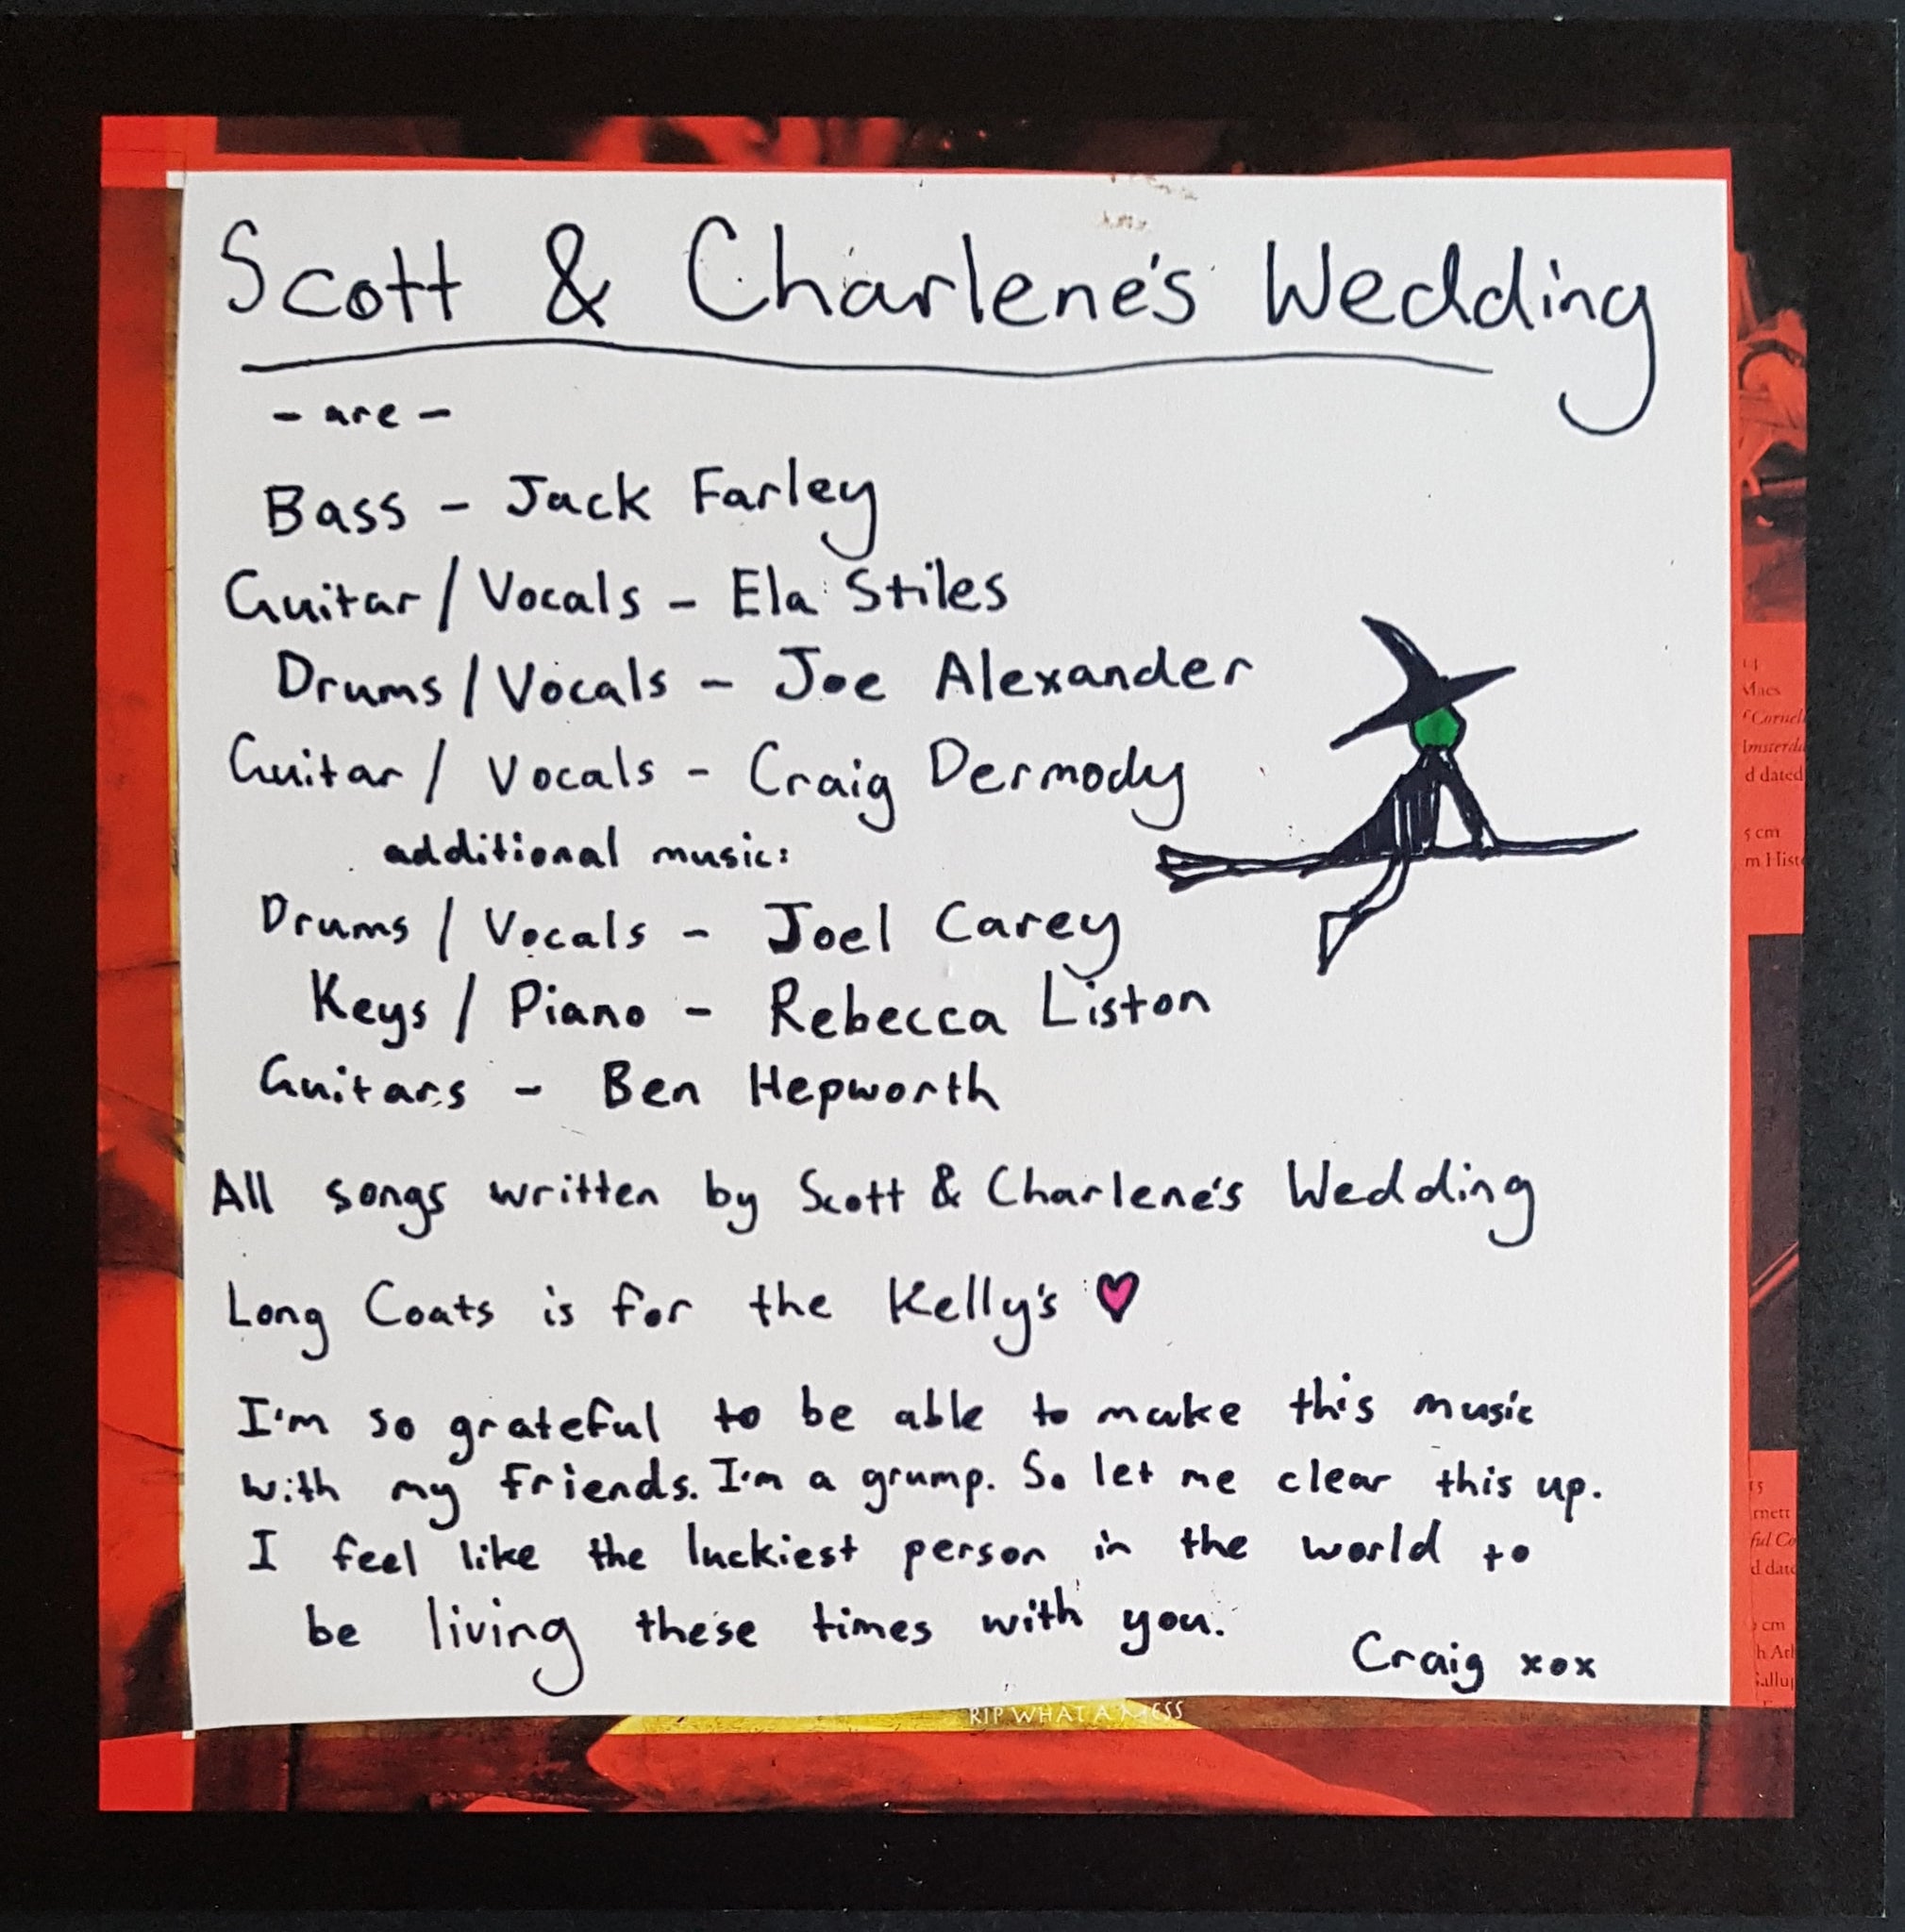 Scott & Charlene's Wedding
- are -
Bass - Jack Farley
Guitar / Vocals - Ela Stiles
Drums / Vocals - Joe Alexander
Guitar / Vocals - Craig Dermody
additional music:
Drums / Vocals - Joel Carey
Keys / Piano - Rebecca Liston
Guitars - Ben Hepworth
All songs written by Scott & Charlene's Wedding
Long Coats is for the Kelly's
I'm so grateful to be able to make this music
with my friends. I'm a grump. So let me clear this up.
I feel like the luckiest person in the world to
be living these times with you.
Craig xox
RIP WHAT A MESS
d dated
5 cm
m Hist
cm